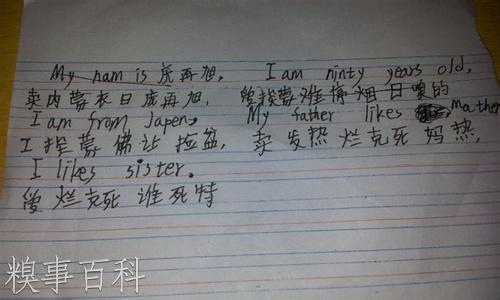 My nam is 庞再旭, I am ninty years old,
卖内蒙衣日庞再旭, 爱挨蒙谁博烟日嗖的
I am from Japen, My father likes mather
I 挨蒙佛让拉盆, 卖发热烂克死妈热,
I likes sister.
爱烂克死谁死特
糗事百科